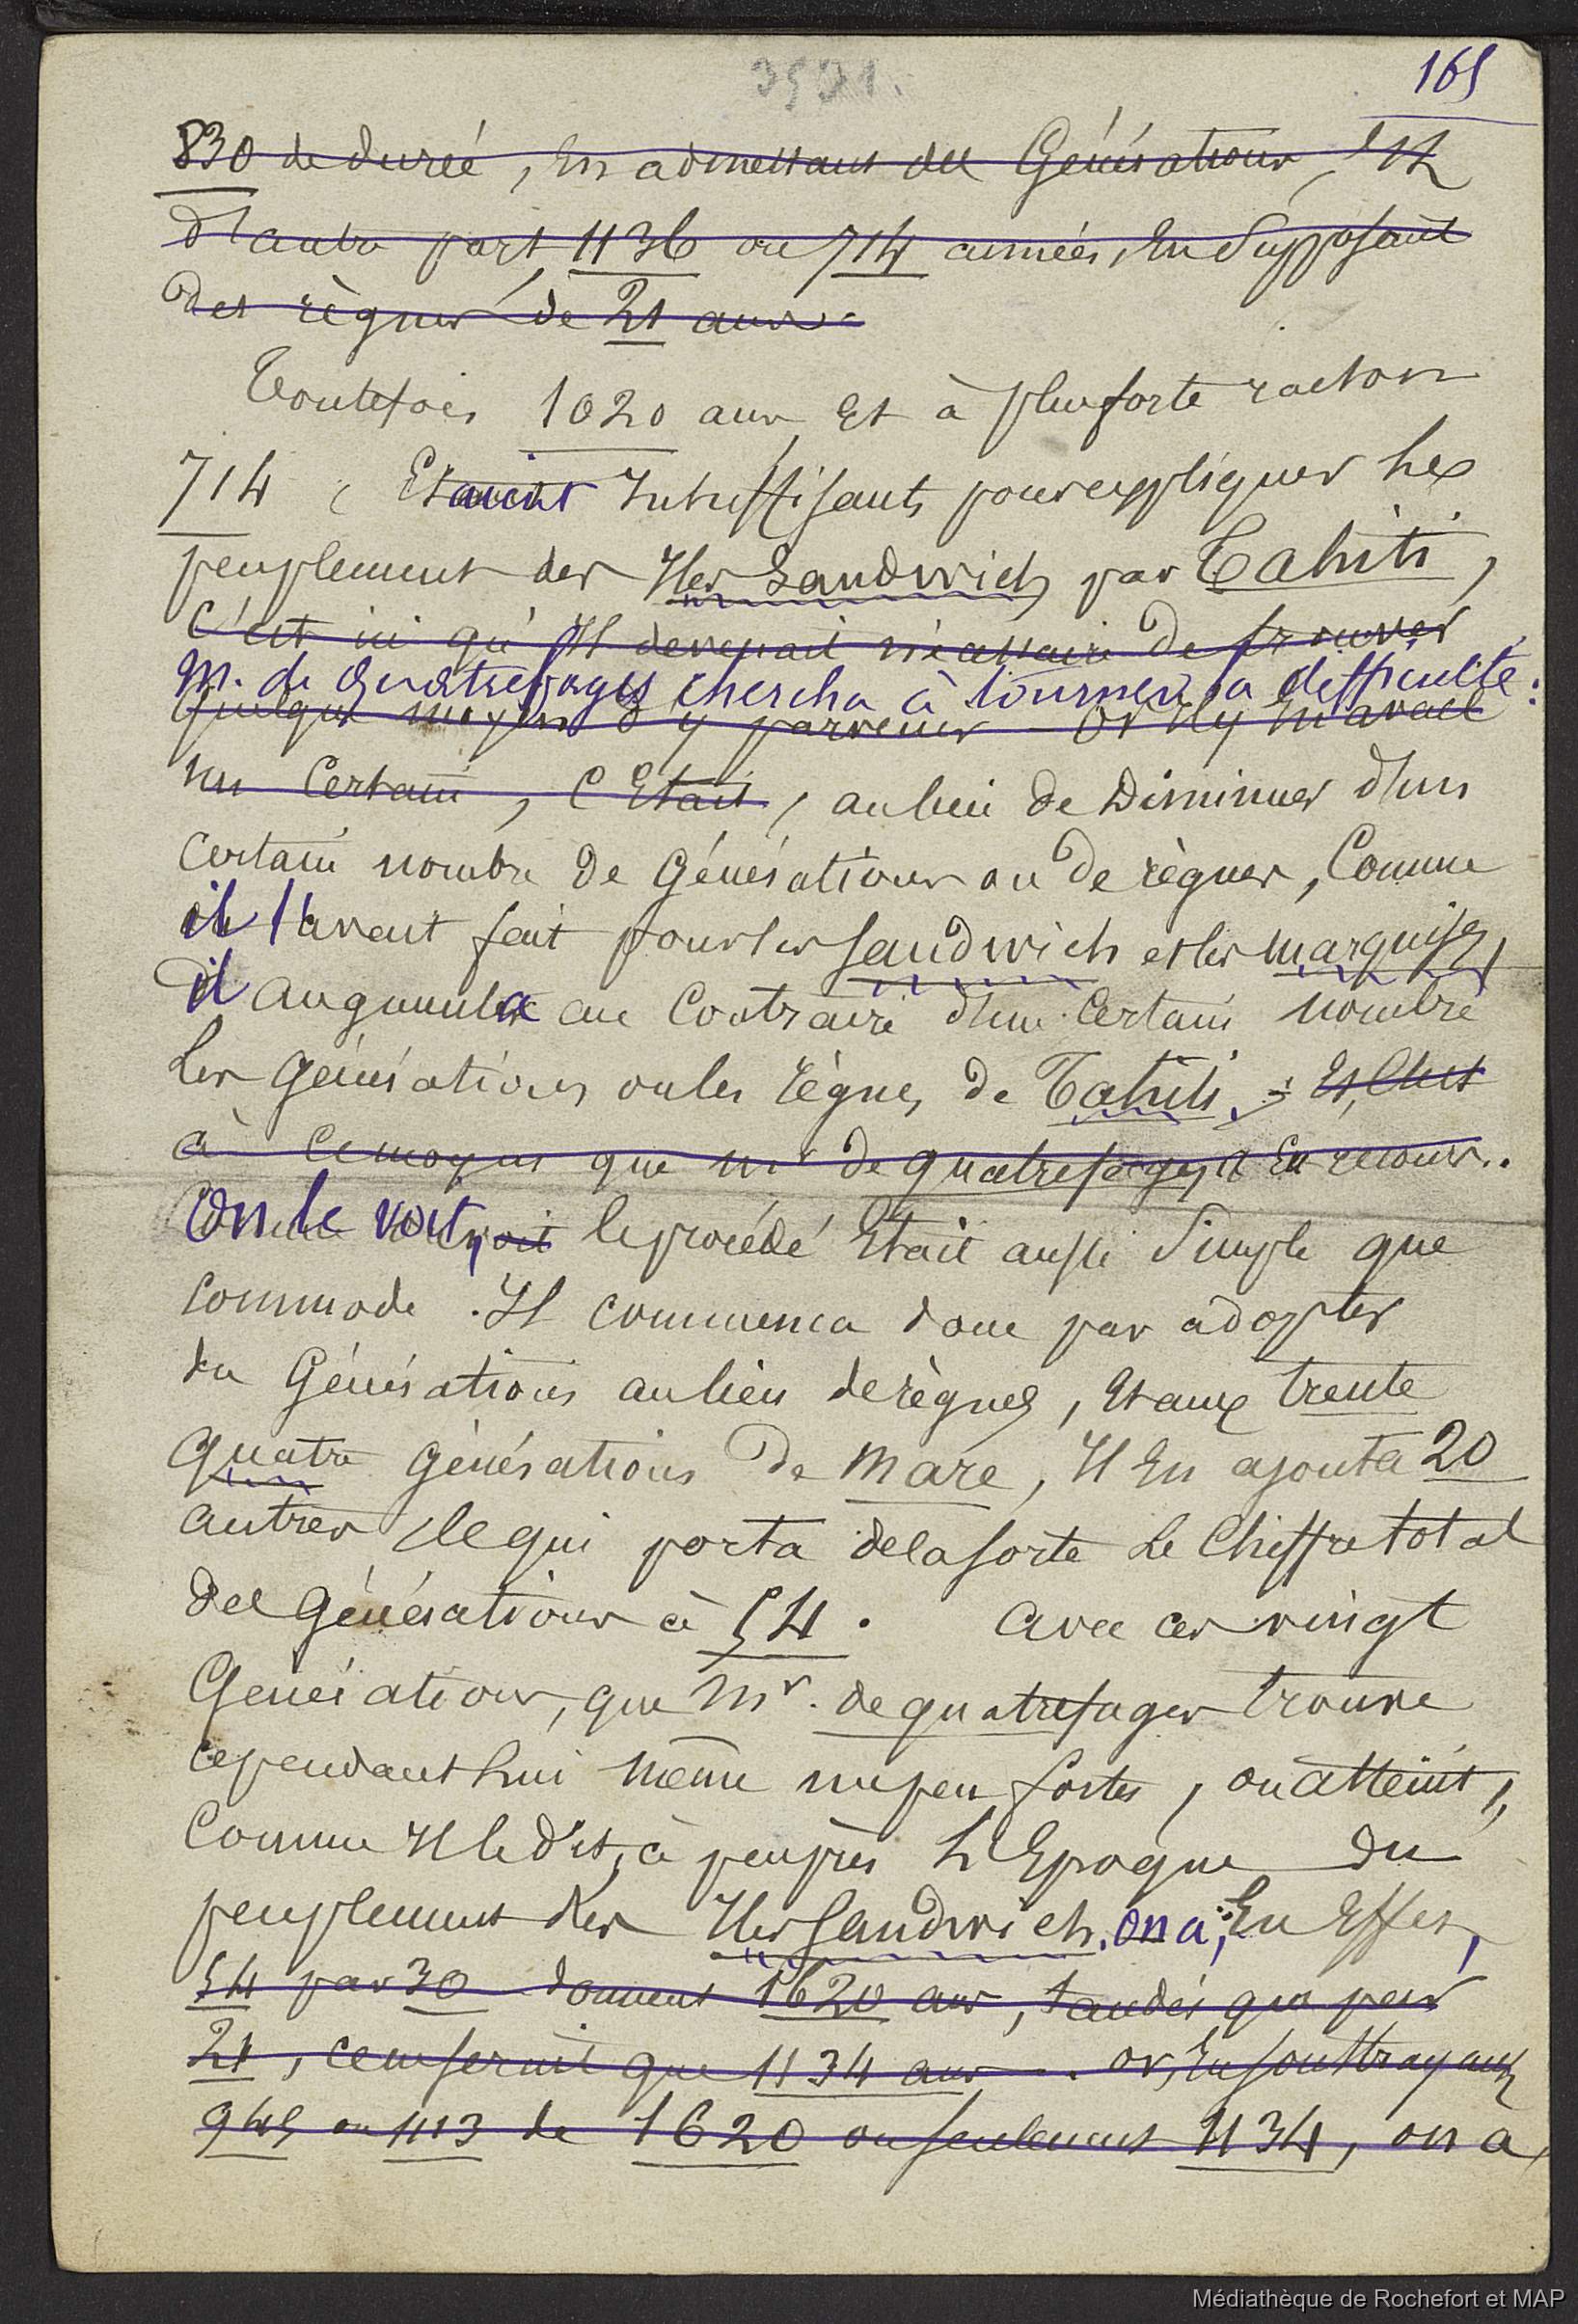 165
3571.
830 de durée, en admettant des Générations, et
d'autre part 1136 ou 714 années, en supposant
des règnes de 21 ans.
Toutefois 1020 ans, et à plus forte raison
714, Etaient Insuffisants pour expliquer le
peuplement des Iles Sandwich par Tahiti,
C'est ici qu'Il devenait nécessaire de trouver
M. de Quatrefages chercha à tourner la difficulté:
quelque moyen d'y parvenir - Or Il y En avait
un Certain, C'Etait, au lieu de Diminuer d'un
certain nombre de Générations ou de règnes, Comme
il l'avait fait pour les Sandwich et les marquises,
il augmenta au Contraire d'un Certain nombre
les Générations ou les règnes de Tahiti; et C'est
à ce moyen que mr de quatrefages a Eu recours.
On le voit, le procédé Etait aussi Simple que
commode. Il commença donc par adopter
des Générations au lieu de règnes, et aux trente
quatre Générations de Mare, Il En ajouta 20
autres, ce qui porta de la sorte le Chiffre total
des Générations à 54. Avec ces vingt
Générations, que Mr. de quatrefages trouve
cependant lui même un peu fortes, on atteint,
Comme Il le dit, à peu près l'Epoque du
peuplement des Iles Sandwich. On a, En Effet,
54 par 30 donnent 1620 ans, tandis que par
21, ce ne serait que 1134 ans. Or, En soustrayant
945 ou 1113 de 1620 ou seulement 1134, on a,
Médiathèque de Rochefort et MAP